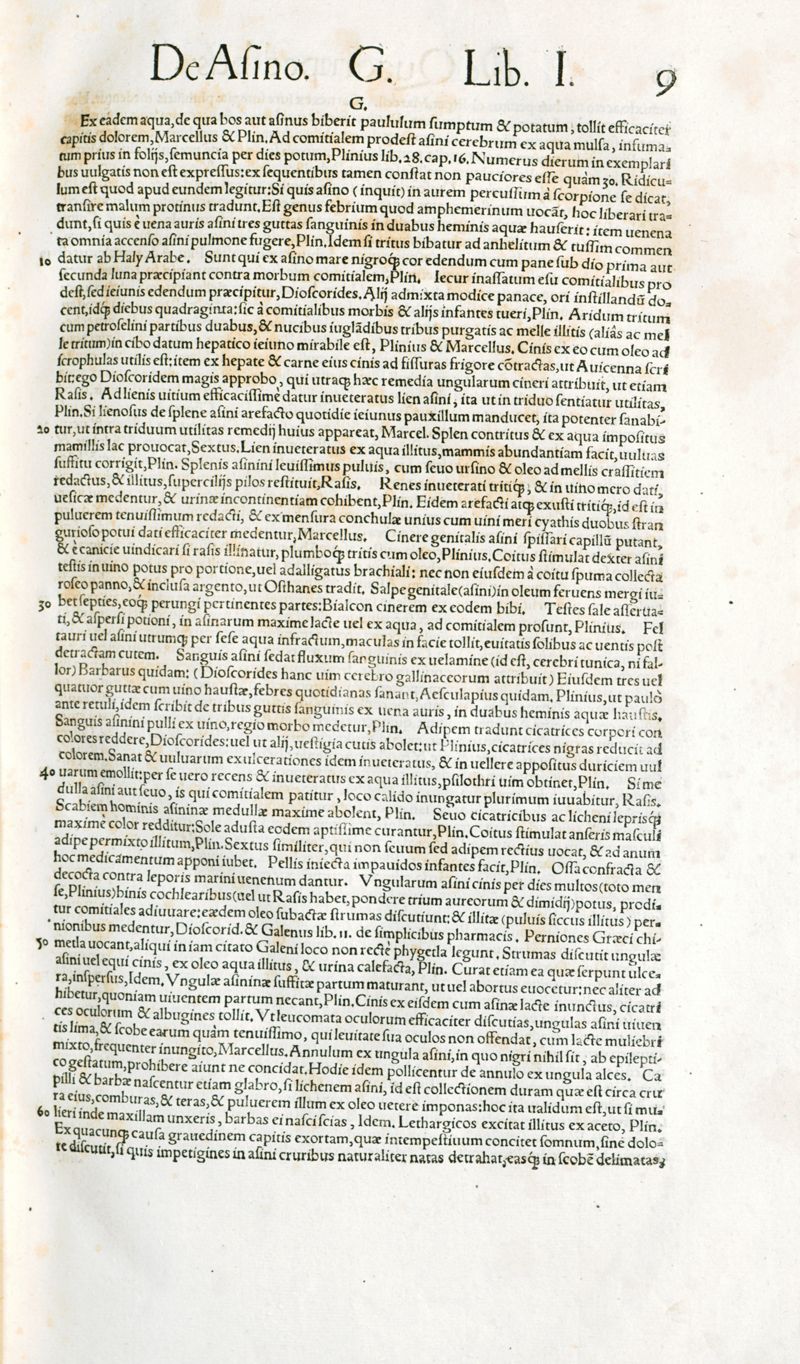 De Aſino. G. Lib. I. 9
G.
Ex eadem aqua, de qua bos aut aſinus biberit paululum ſumptum & potatum, tollit efficaciter
capitis dolorem, Marcellus & Plin. Ad comitialem prodeſt aſini cerebrum ex aqua mulſa, infuma-
tum prius in folijs, ſemuncia per dies potum, Plinius lib. 28. cap. 16. Numerus dierum in exemplari
bus uulgatis non eſt expreſſus: ex ſequentibus tamen conſtat non pauciores eſſe quàm 30. Ridicu-
lum eſt quod apud eundem legitur: Si quis aſino (inquit) in aurem percuſſum à ſcorpione ſe dicat,
tranſire malum protinus tradunt. Eſt genus febrium quod amphemerinum uocãt, hoc liberari tra-
dunt, ſi quis è uena auris aſini tres guttas ſanguinis in duabus heminis aquæ hauſerit: item uenena
ta omnia accenſo aſini pulmone fugere, Plin. Idem ſi tritus bibatur ad anhelitum & tuſſim commen
10 datur ab Haly Arabe. Sunt qui ex aſino mare nigroq́ꝫ cor edendum cum pane ſub dio prima aut
ſecunda luna præcipiant contra morbum comitialem, Plin. Iecur inaſſatum eſu comitialibus pro
deſt, ſed ieiunis edendum præcipitur, Dioſcorides. Alij admixta modice panace, ori inſtillandũ do-
cent, idq́ꝫ diebus quadraginta: ſic à comitialibus morbis & alijs infantes tueri, Plin. Aridum tritum
cum petroſelini partibus duabus, & nucibus iuglãdibus tribus purgatis ac melle illitis (aliâs ac mel
le tritum) in cibo datum hepatico ieiuno mirabile eſt, Plinius & Marcellus. Cinis ex eo cum oleo ad
ſcrophulas utilis eſt: item ex hepate & carne eius cinis ad fiſſuras frigore cõtractas, ut Auicenna ſcri
bit: ego Dioſcoridem magis approbo, qui utraq́ꝫ hæc remedia ungularum cineri attribuit, ut etiam
Raſis. Ad lienis uitium efficaciſſime datur inueteratus lien aſini, ita ut in triduo ſentiatur utilitas,
Plin. Si lienoſus de ſplene aſini arefacto quotidie ieiunus pauxillum manducet, ita potenter ſanabi-
20 tur, ut intra triduum utilitas remedij huius appareat, Marcel. Splen contritus & ex aqua impoſitus
mamillis lac prouocat, Sextus. Lien inueteratus ex aqua illitus, mammis abundantiam facit, uuluas
ſuffitu corrigit, Plin. Splenis aſinini leuiſſimus puluis, cum ſeuo urſino & oleo ad mellis craſſitiem
redactus, & illitus, ſupercilijs pilos reſtituit, Raſis. Renes inueterati tritiq́ꝫ, & in uino mero dati,
ueſicæ medentur, & urinæ incontinentiam cohibent, Plin. Eidem arefacti atq́ꝫ exuſti tritiq́ꝫ, id eſt in
puluerem tenuiſſimum redacti, & ex menſura conchulæ unius cum uini meri cyathis duobus ſtran
gurioſo potui dati efficaciter medentur, Marcellus. Cinere genitalis aſini ſpiſſari capillũ putant,
& è canicie uindicari ſi raſis illinatur, plumboq́ꝫ tritis cum oleo, Plinius. Coitus ſtimulat dexter aſini
teſtis in uino potus pro portione, uel adalligatus brachiali: nec non eiuſdem à coitu ſpuma collecta
roſeo panno, & incluſa argento, ut Oſthanes tradit. Salpe genitale (aſini) in oleum feruens mergi iu-
30 bet ſepties, eoq́ꝫ perungi pertinentes partes: Bialcon cinerem ex eodem bibi. Teſtes ſale aſſerua-
ti, & aſperſi potioni, in aſinarum maxime lacte uel ex aqua, ad comitialem proſunt, Plinius. Fel
tauri uel aſini utrumq́ꝫ per ſeſe aqua infractum, maculas in facie tollit, euitatis ſolibus ac uentis poſt
detractam cutem. Sanguis aſini ſedat fluxum ſanguinis ex uelamine (id eſt, cerebri tunica, ni fal-
lor) Barbarus quidam: (Dioſcorides hanc uim cerebro gallinaceorum attribuit) Eiuſdem tres uel
quatuor guttæ cum uino hauſtæ, febres quotidianas ſanant, Aeſculapius quidam. Plinius, ut paulò
ante retuli, idem ſcribit de tribus guttis ſanguinis ex uena auris, in duabus heminis aquæ hauſtis.
Sanguis aſinini pulli ex uino, regio morbo medetur, Plin. Adipem tradunt cicatrices corpori con
colores reddere, Dioſcorides: uel ut alij, ueſtigia cutis abolet: ut Plinius, cicatrices nigras reducit ad
colorem. Sanat & uuluarum exulcerationes idem inueteratus, & in uellere appoſitus duriciem uul
40 uarum emollit: per ſe uero recens & inueteratus ex aqua illitus, pſilothri uim obtinet, Plin. Si me
dulla aſini aut ſeuo, is qui comitialem patitur, loco calido inungatur plurimum iuuabitur, Raſis.
Scabiem hominis aſininæ medullæ maxime abolent, Plin. Seuo cicatricibus ac licheni leprisq́ꝫ
maxime color redditur: Sole aduſta eodem aptiſſime curantur, Plin. Coitus ſtimulat anſeris maſculi
adipe permixto illitum, Plin. Sextus ſimiliter, qui non ſeuum ſed adipem rectius uocat, & ad anum
hoc medicamentum apponi iubet. Pellis iniecta impauidos infantes facit, Plin. Oſſa confracta &
decocta contra leporis marini uenenum dantur. Vngularum aſini cinis per dies multos (toto men
ſe, Plinius) binis cochlearibus (uel ut Raſis habet, pondere trium aureorum & dimidij) potus, prodi-
tur comitiales adiuuare: eædem oleo ſubactæ ſtrumas diſcutiunt: & illitæ (puluis ſiccus illitus) per-
nionibus medentur, Dioſcorid. & Galenus lib. 11. de ſimplicibus pharmacis. Perniones Græci chi-
50 metla uocant, aliqui in iam citato Galeni loco non recte phygetla legunt. Strumas diſcutit ungulæ
aſini uel equi cinis, ex oleo aqua illitus, & urina calefacta, Plin. Curat etiam ea quæ ſerpunt ulce-
ra, inſperſus, Idem. Vngulæ aſininæ ſuffitæ partum maturant, ut uel abortus euocetur: nec aliter ad
hibetur, quoniam uiuentem partum necant, Plin. Cinis ex eiſdem cum aſinæ lacte inunctus, cicatri
ces oculorum & albugines tollit. Vt leucomata oculorum efficaciter diſcutias, ungulas aſini uiuen
tis lima, & ſcobe earum quàm tenuiſſimo, qui leuitate ſua oculos non offendat, cum lacte muliebri
mixto, frequenter inungito, Marcellus. Annulum ex ungula aſini, in quo nigri nihil ſit, ab epilepti-
co geſtatum, prohibere aiunt ne concidat. Hodie idem pollicentur de annulo ex ungula alces. Ca
pilli & barbæ naſcentur etiam glabro, ſi lichenem aſini, id eſt collectionem duram quæ eſt circa cru
ra eius, comburas, & teras, & puluerem illum ex oleo uetere imponas: hoc ita ualidum eſt, ut ſi mu-
60 lieri inde maxillam unxeris, barbas ei naſci ſcias, Idem. Lethargicos excitat illitus ex aceto, Plin.
Ex quacunq́ꝫ cauſa grauedinem capitis exortam, quæ intempeſtiuum concitet ſomnum, ſine dolo-
re diſcutit, ſi quis impetigines in aſini cruribus naturaliter natas detrahat, easq́ꝫ in ſcobẽ delimatas,